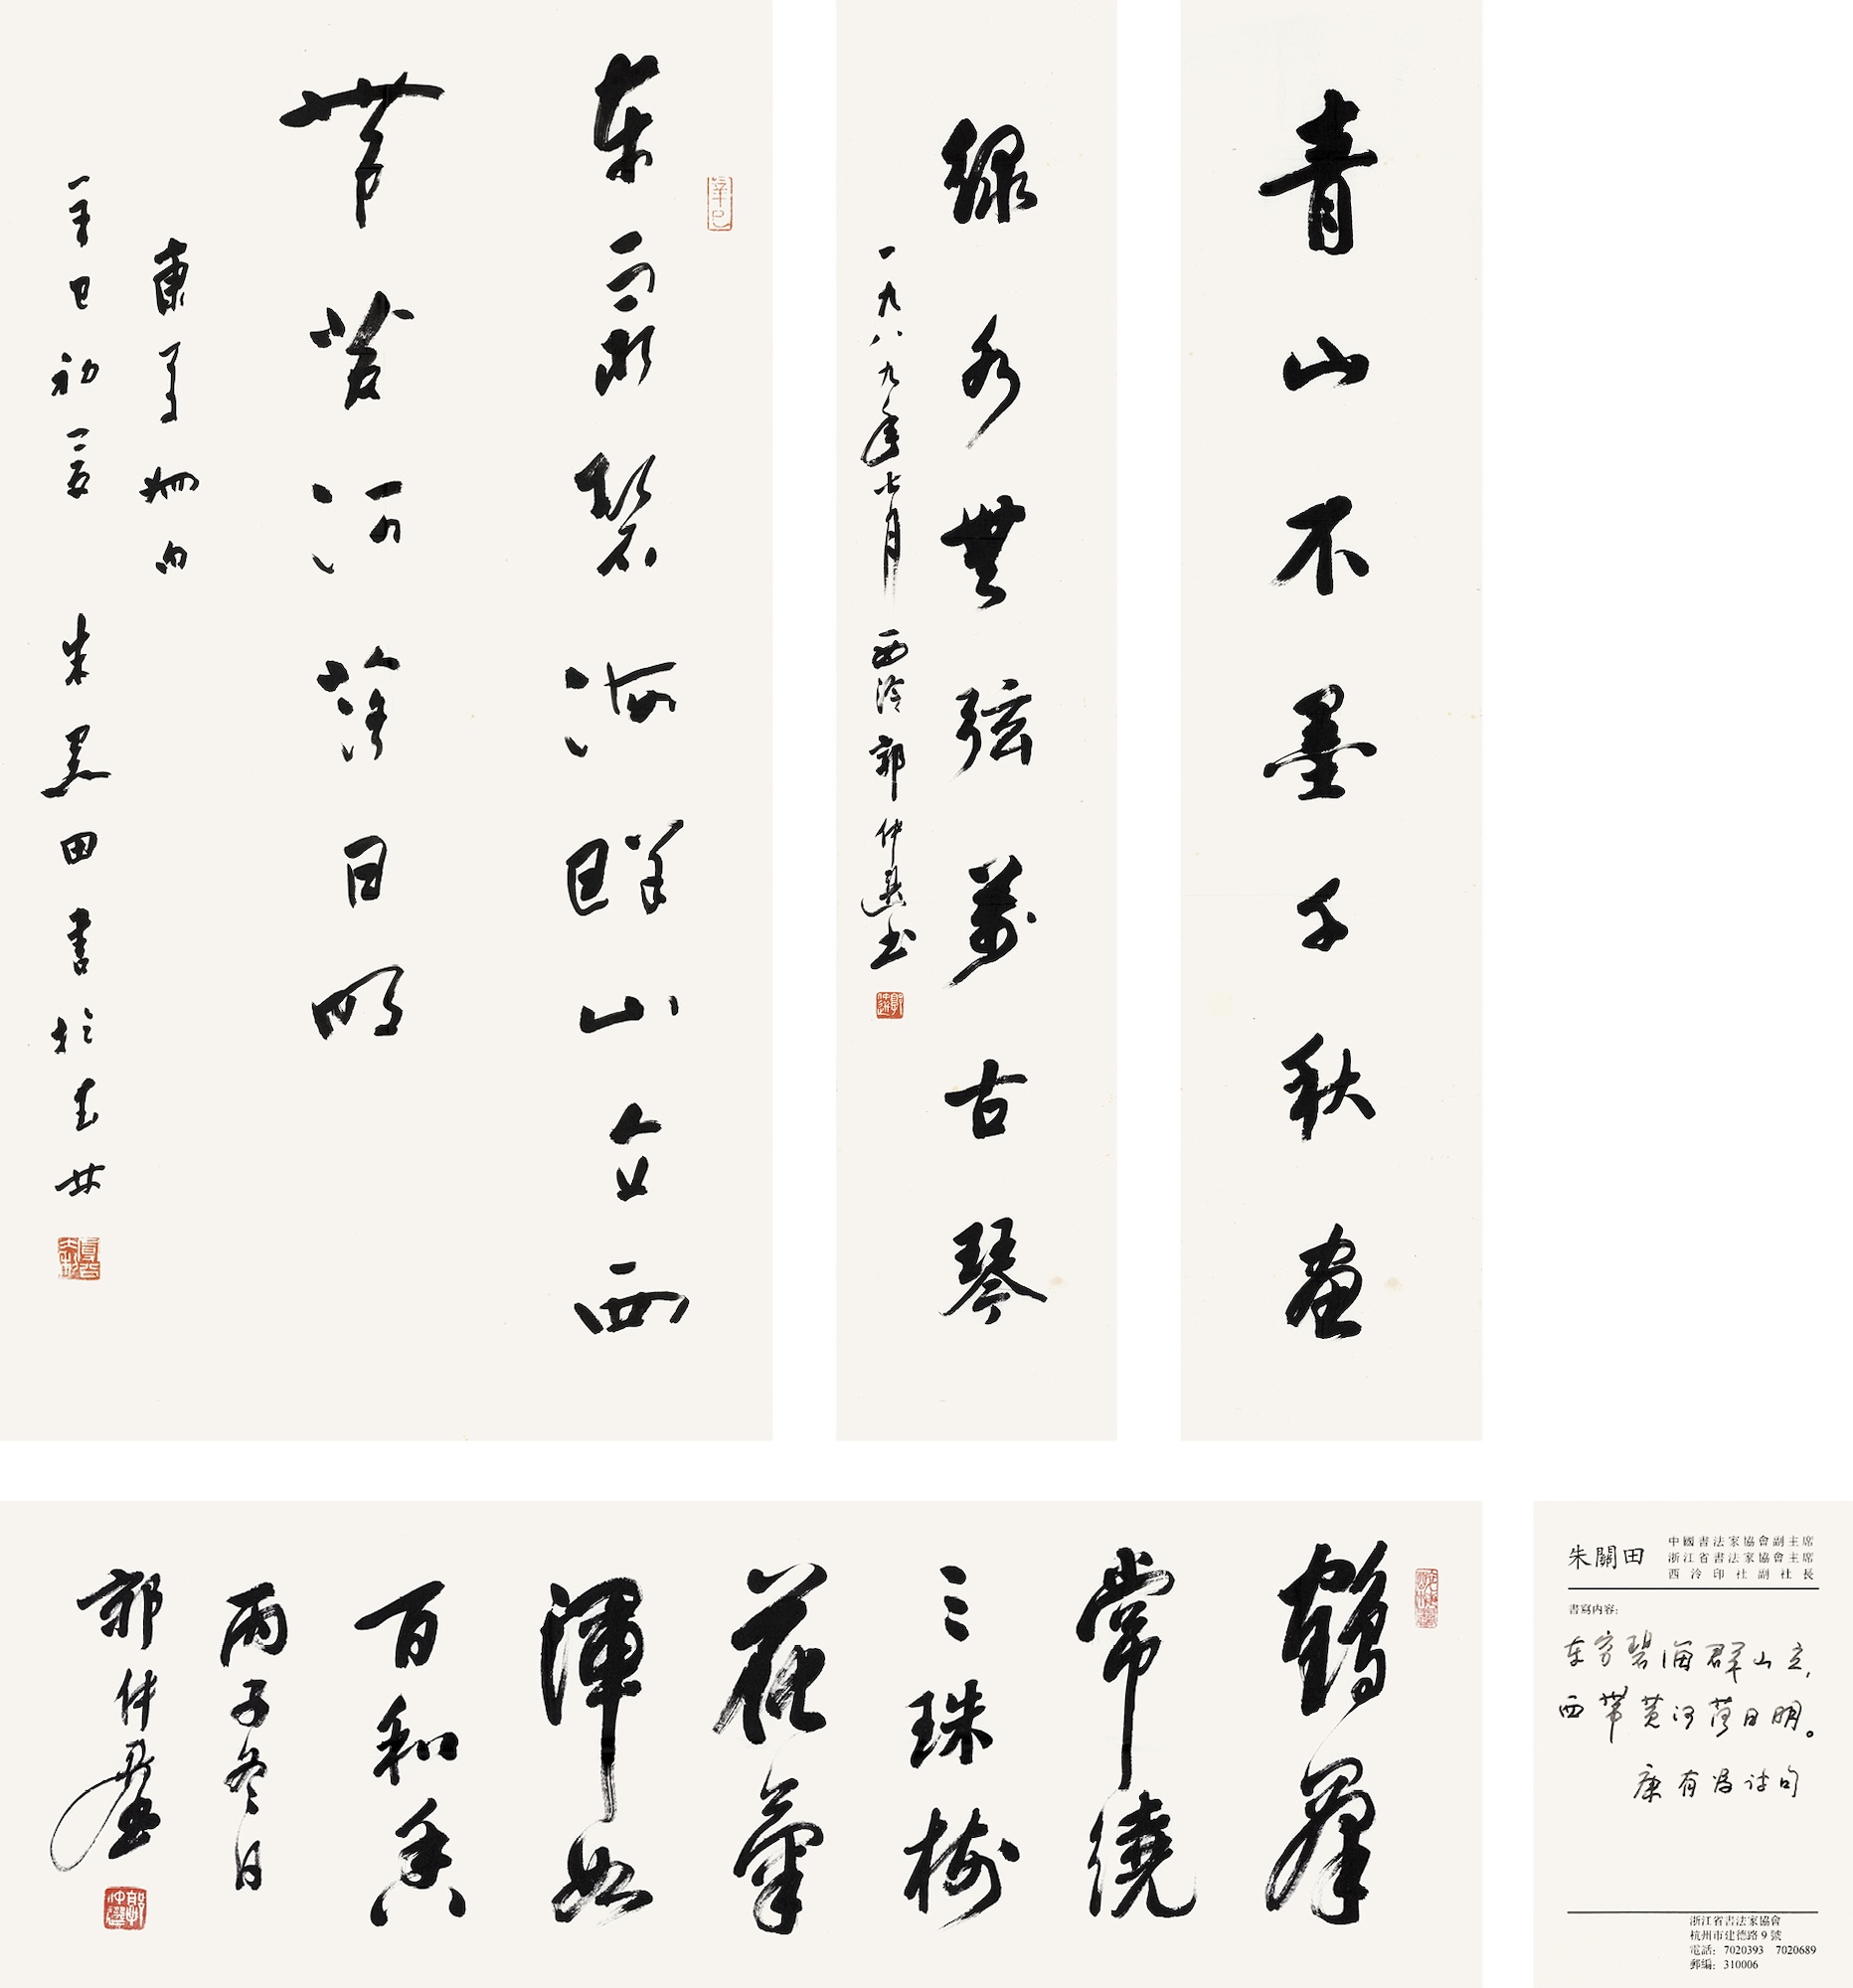 辛巳
东穷碧海群山立西
带黄河落日明
康有为诗句
辛巳初夏 朱关田書於
青山不墨千秋画
绿水無弦萬古琴
一九八九年七月 西泠郭仲選书
鶴群
常繞
三珠樹
花氣
渾如
百和香
丙子冬日
郭仲選
朱關田
中國書法家協會副主席
浙江省書法家協會主席
西泠印社副社長
書寫內容:
东穷碧海群山立,
西带黄河落日明。
康有為诗句
浙江省書法家協會
杭州市建德路9號
電話: 7020393 7020689
郵編: 310006